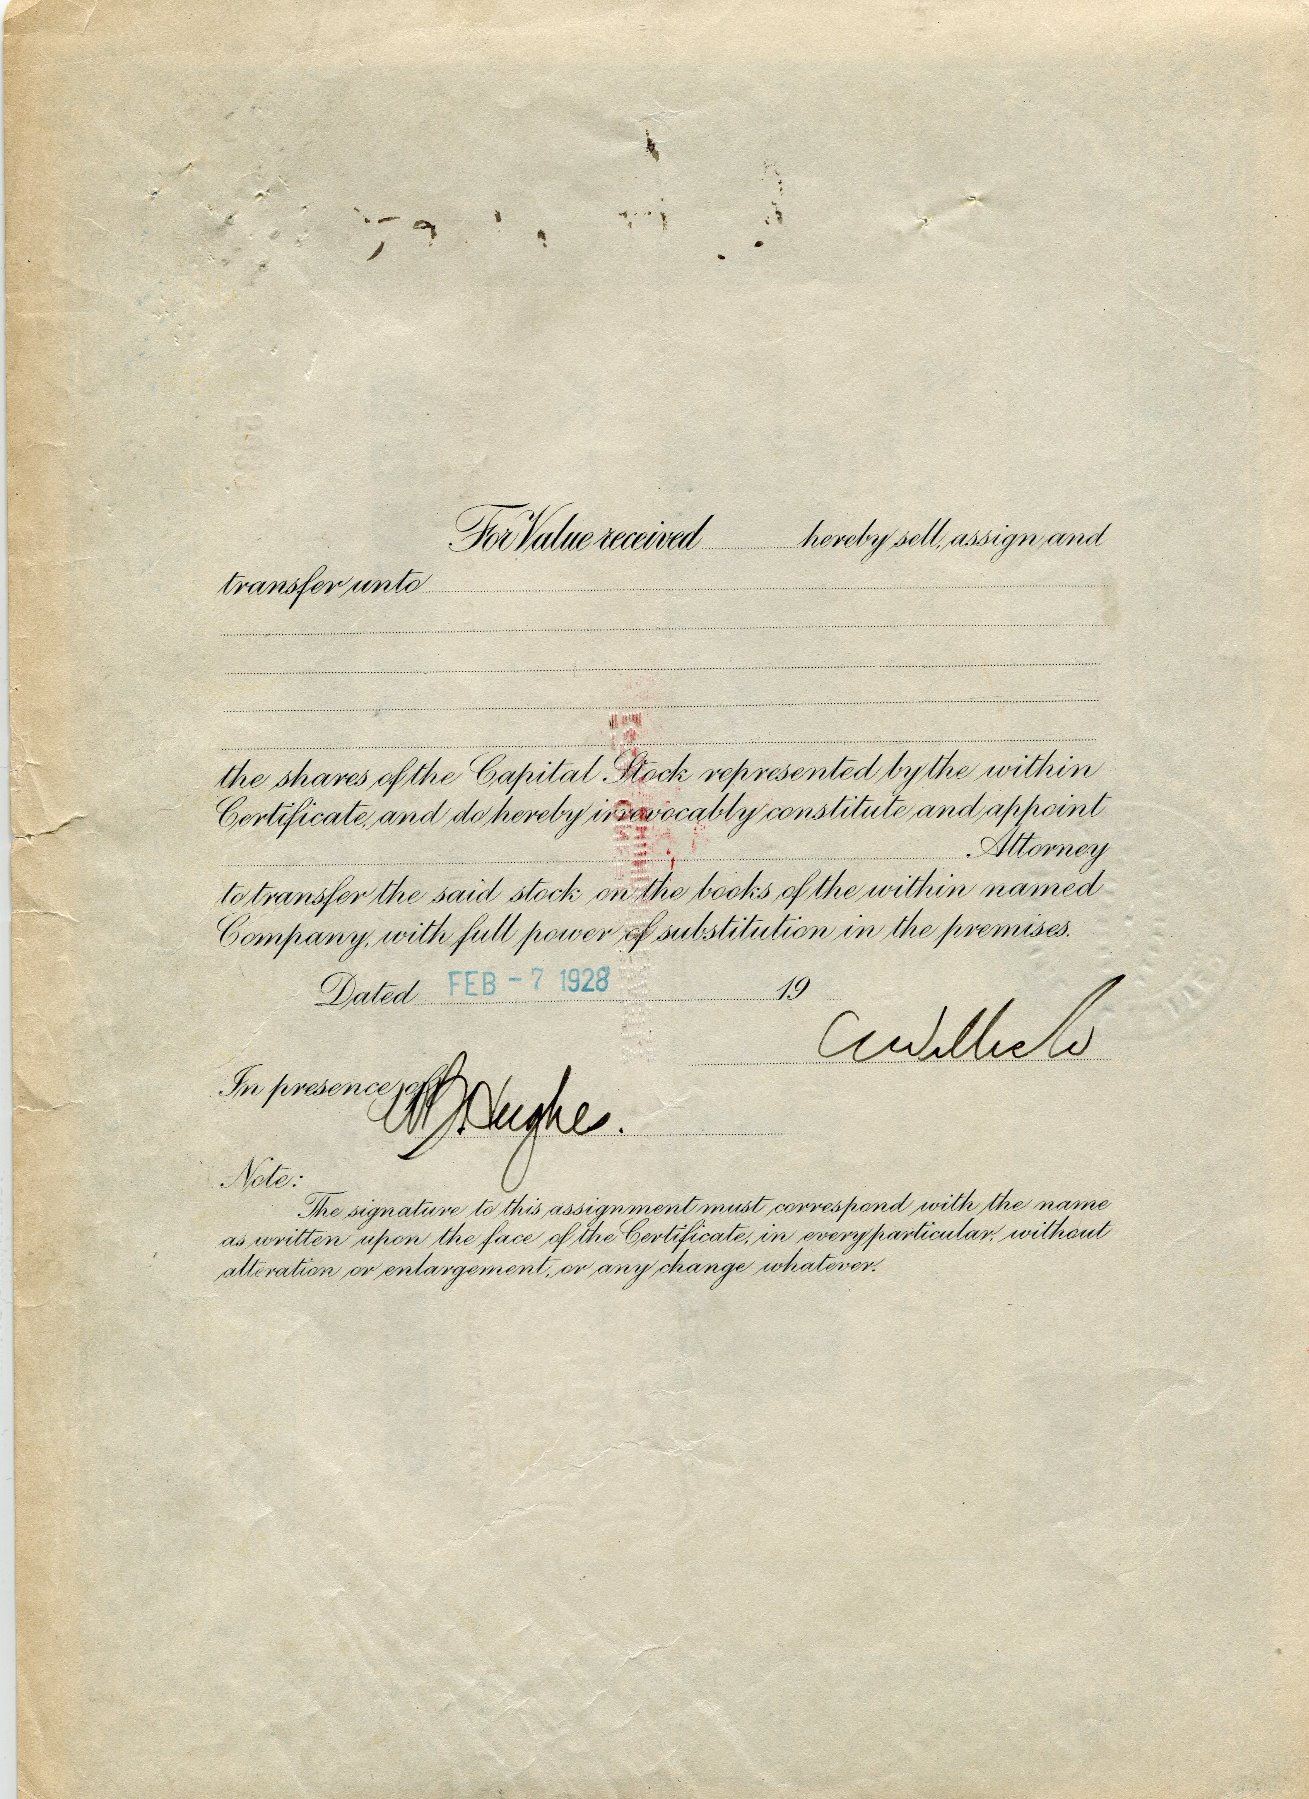 For Value received hereby sell, assign and
transfer unto
the shares of the Capital Stock represented by the within
Certificate, and do hereby irrevocably constitute and appoint
Attorney
to transfer the said stock on the books of the within named
Company, with full power of substitution in the premises.
Dated FEB - 7 1928 19
In presence of
Hughes.
Note:
The signature to this assignment must correspond with the name
as written upon the face of the Certificate, in every particular, without
alteration or enlargement, or any change whatever.